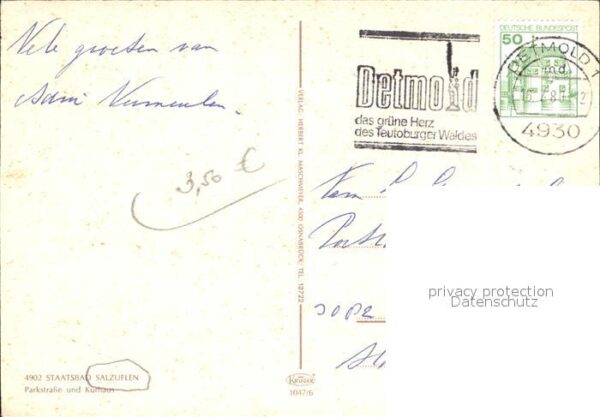 Vele groeten van
Adri Vermeulen.
3,50 €
4902 STAATSBAD SALZUFLEN
Parkstraße und Kurhaus
VERLAG HERBERT KL. MASCHMEYER, 4500 OSNABRÜCK, TEL. 12722
KRÜGER
1047/6
Detmold
das grüne Herz
des Teutoburger Waldes
DEUTSCHE BUNDESPOST
50
DETMOLD 1
4930
Fam.
privacy protection
Datenschutz